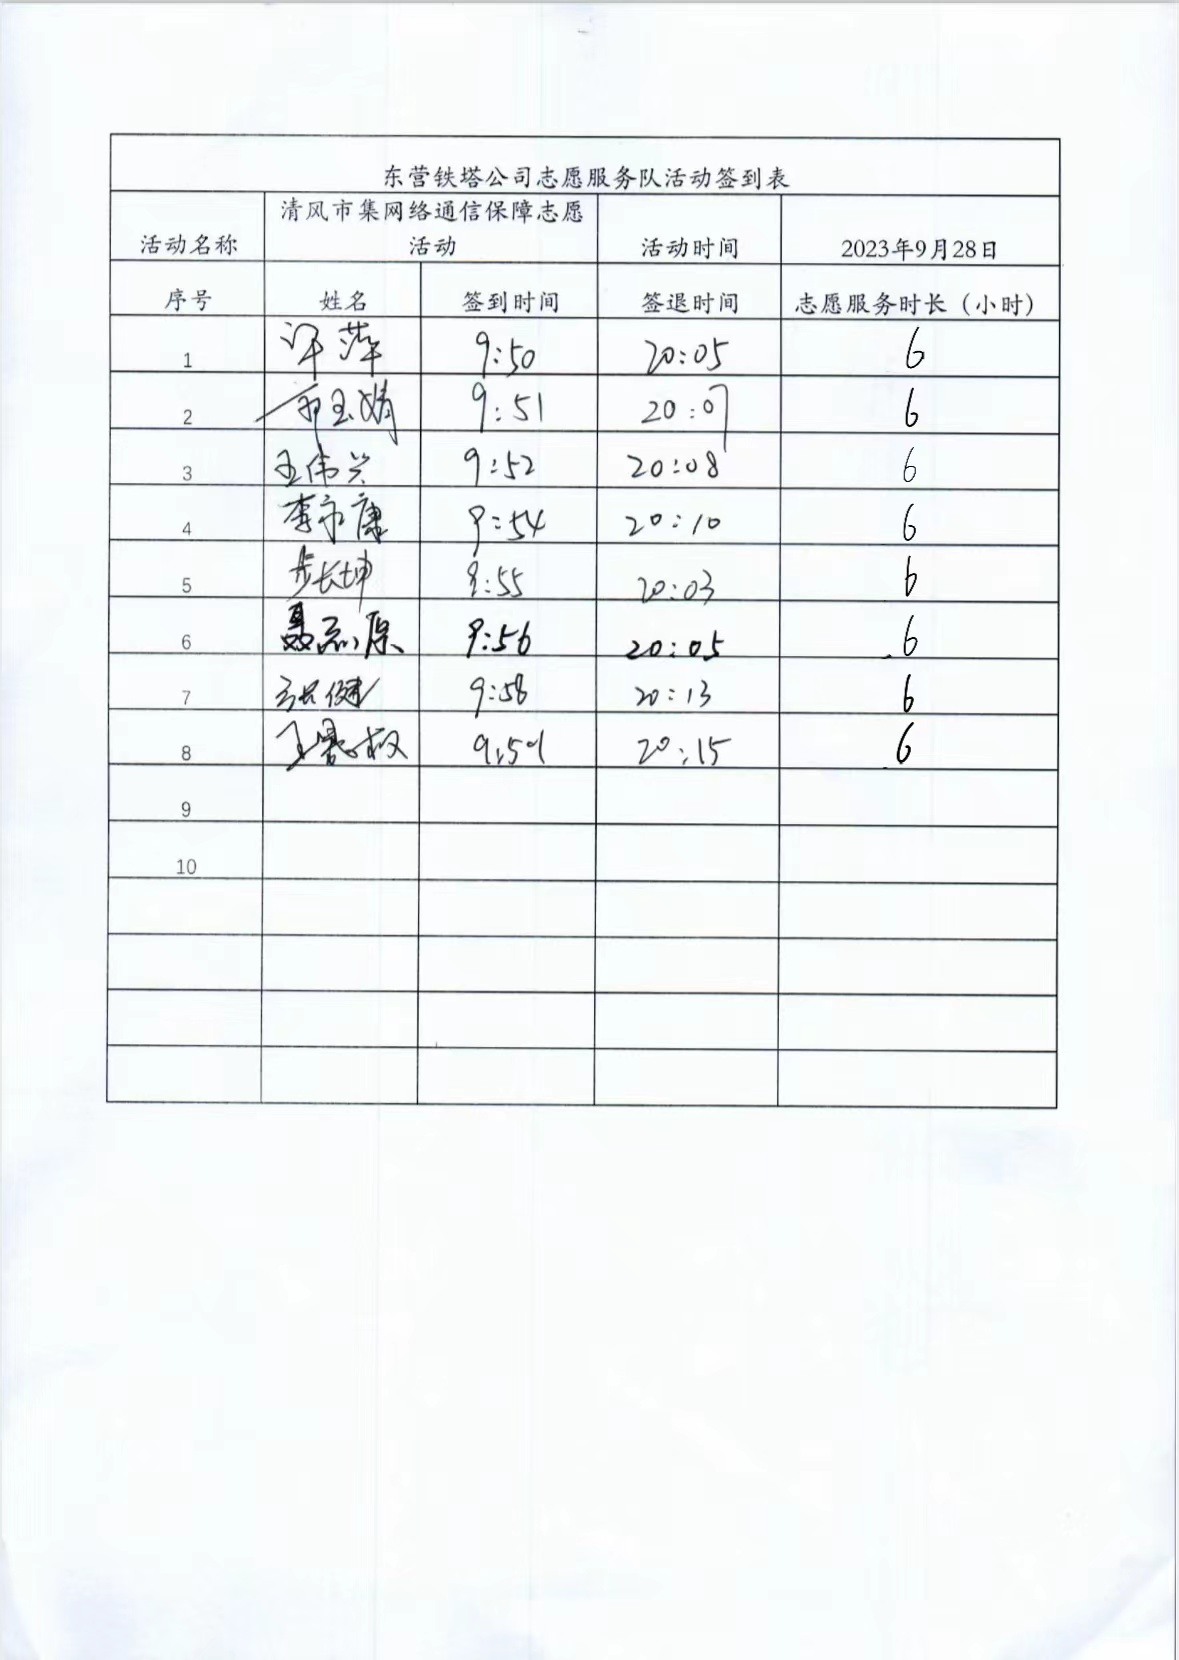 东营铁塔公司志愿服务队活动签到表
活动名称 清风市集网络通信保障志愿活动 活动时间 2023年9月28日
序号 姓名 签到时间 签退时间 志愿服务时长（小时）
1 许萍 9:50 20:05 6
2 玉婧 9:51 20:07 6
3 王伟兴 9:52 20:08 6
4 李永康 9:54 20:10 6
5 步长坤 9:55 20:03 6
6 聂志原 9:56 20:05 6
7 张健 9:58 20:13 6
8 王 9:59 20:15 6
9
10